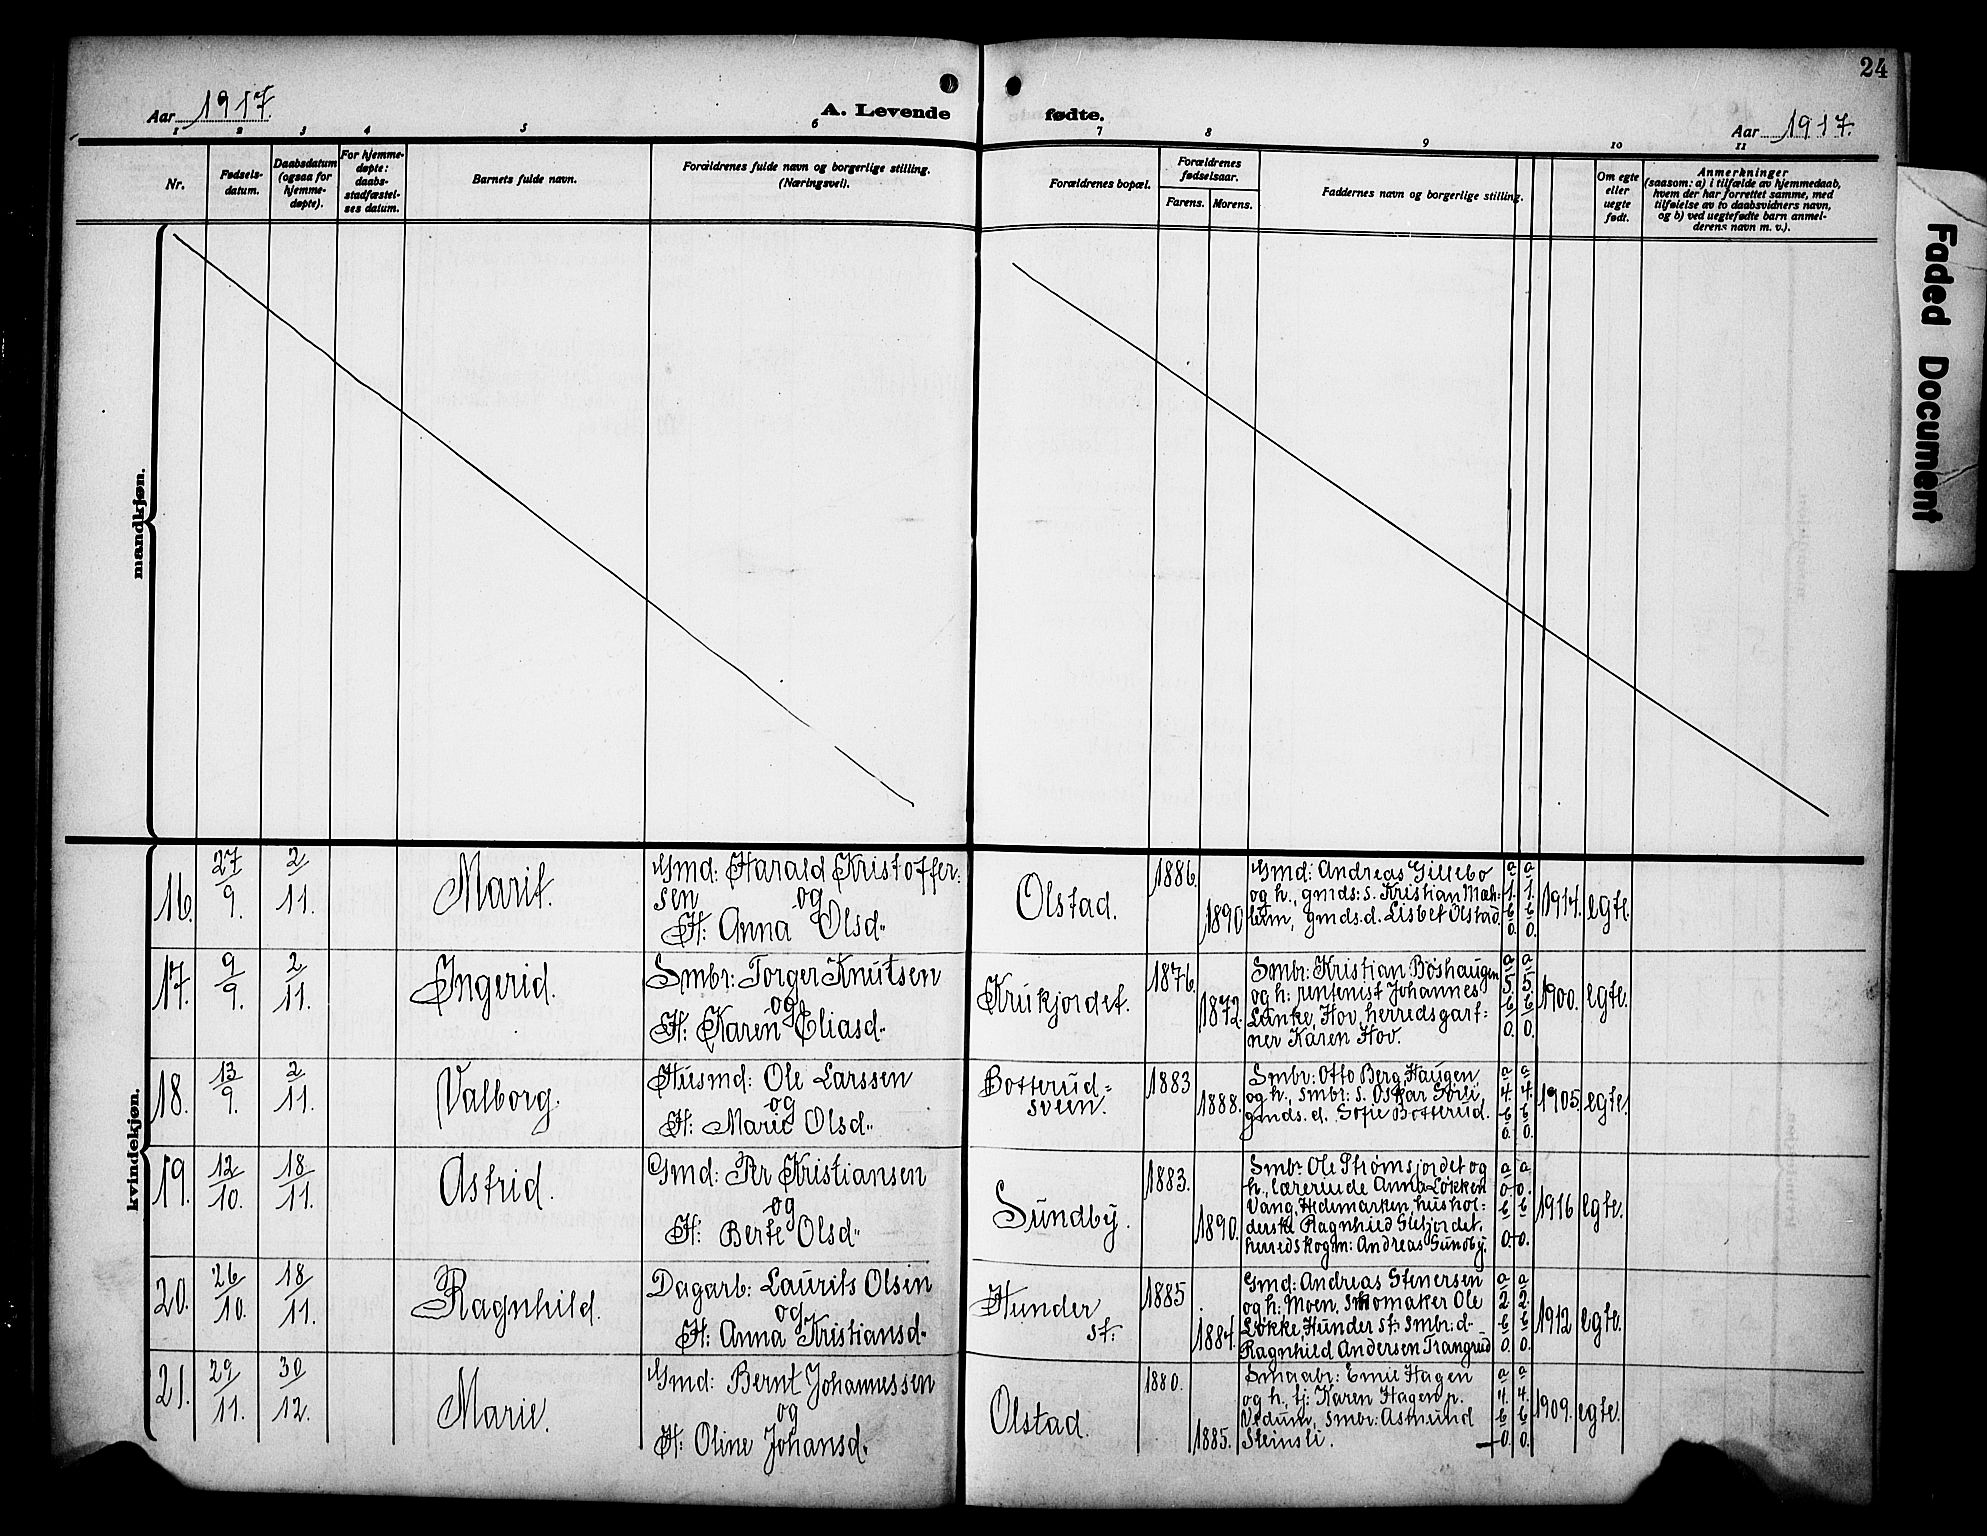 24
Aar 1917.
A. Levende
fødte.
Aar 1917.
1 2 3 4 5 6 7 8 9 10 11
Nr.
Fødsels-
datum.
Daabsdatum
(ogsaa for
hjemme-
døpte).
For hjemme-
døpte:
daabs-
stadfæstel-
ses datum.
Barnets fulde navn.
Forældrenes fulde navn og borgerlige stilling.
(Næringsvei).
Forældrenes bopæl.
Forældrenes
fødselsaar.
Farens. Morens.
Faddernes navn og borgerlige stilling.
Om egte
eller
uegte
født.
Anmerkninger
(saasom: a) i tilfælde av hjemmedaab,
hvem der har forrettet samme, med
tilføielse av to daabsvidners navn,
og b) ved uegtefødte barn anmel-
derens navn m. v.).
Faded Document
mandkjøn.
kvindekjøn.
16.
27/9.
2/11.
Marit.
Gmd: Harald Kristoffer-
sen og
H: Anna Olsd.
Olstad.
1886.
1890
Gmd: Andreas Gillebo
og h., gmds: s. Kristian Mæh-
lum, gmds. d. Lisbet Olstad.
a 1. b 0.
a 1. b 0.
1914.
egte.
17.
9/9.
2/11.
Ingerid.
Smbr: Torger Knutsen
og
H: Karen Eliasd.
Krukjordet.
1876.
1872.
Smbr: Kristian Boshaugen
og h: rentenist Johannes
Lunke, Hov, herredsgart-
ner Karen Hov.
a 5. b 0.
a 5. b 0.
1900.
egte.
18.
13/9.
2/11.
Valborg.
Husmd: Ole Larssen
og
H: Marie Olsd.
Botterud-
sveen.
1883
1888.
Smbr: Otto Berg, Haugen,
og h., smbr: s. Oskar Sørli,
gmds. d. Sofie Botterud.
a 4. b 0.
a 4. b 0.
1905.
egte.
19.
12/10.
18/11.
Astrid.
Gmd: Per Kristiansen
og
H: Berte Olsd.
Sundby.
1883.
1890.
Smbr Ole Strømsjordet og
h., lærerinde Anna Løkken
Vang, Hedemarken, hushol-
derske Ragnhild Slefjordet,
herredskogm: Andreas Sundby.
a 0. b 0.
a 0. b 0.
1916
egte.
20.
26/10.
18/11.
Ragnhild.
Dagarb: Laurits Olsen
og
H: Anna Kristiansd.
Hunder
st.
1885
1884.
Gmd: Andreas Stenersen
og h: Moen, skomaker Ole
Løkke, Hunder st. smbr: d.
Ragnhild Andersen Trangrud
a 2. b 0.
a 2. b 0.
1912
egte.
21.
29/11.
30/12.
Marie.
Gmd: Bernt Johannessen
og
H: Oline Johansd.
Olstad.
1880.
1885.
Smaabr: Emil Hagen
og h., tj: Karen Hagen p.
Vedum, smbr: Asmund
Steinsli.
a 4. b 0.
a 4. b 0.
1909.
egte.